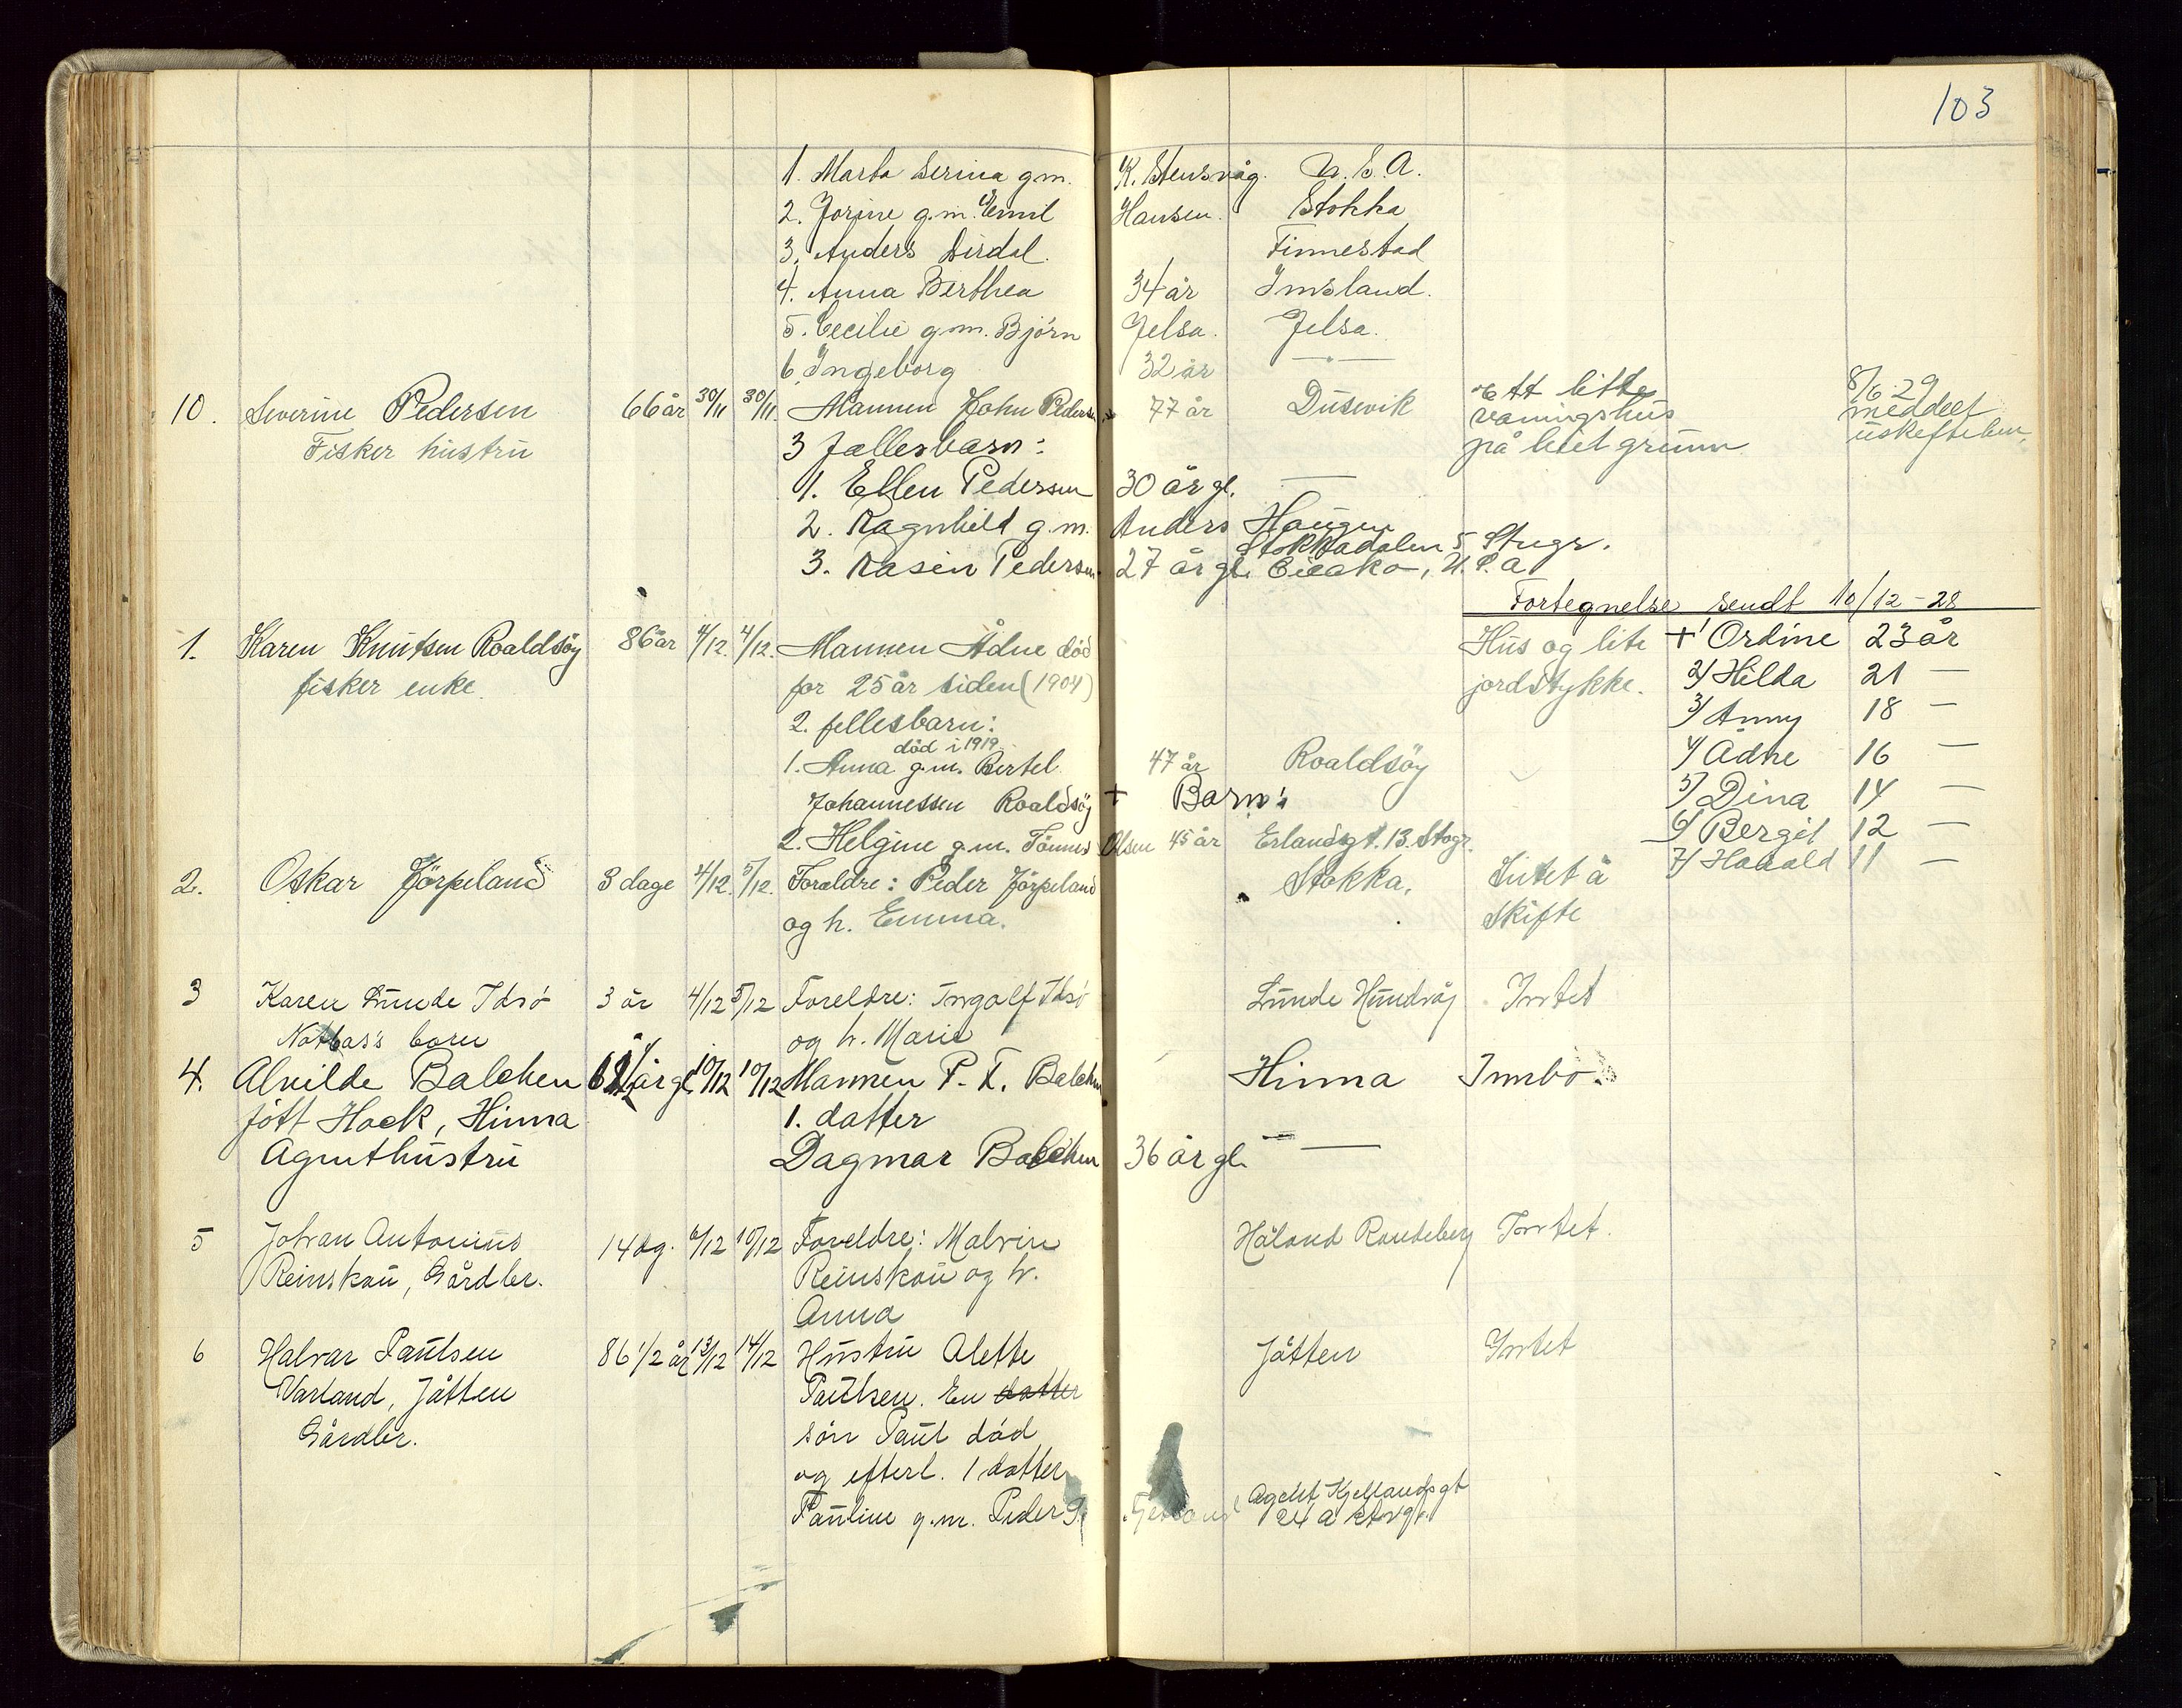 103
1. Marta Serina g.m. K. Stensvåg. U.S.A.
2. Jorine g.m. Emil Hansen. Stokka
3. Anders Sirdal. Finnestad
4. Anna Berthea 34 år Imsland.
5. Cecilie g.m. Björn Jelsa. Jelsa.
6. Ingeborg 32 år —"—
10. Severine Pedersen 66 år 30/11 30/11. Mannen John Pedersen 77 år Dusevik Ett litte 8/6.29
vaningshus meddelt
Fisker hustru 3 fællesbarn: på leiet grunn uskiftebev.
1. Ellen Pedersen 30 år gl. —
2. Ragnhild g.m. Anders Haugen
Stokkadalen 5 Stvgr.
3. Rasin Pedersen 27 år gl. Cicako, U.S.a
Fortegnelse sendt 10/12-28
1. Karen Knutsen Roaldsöy 86 år 4/12. 4/12. Mannen Ådne död Hus og lite + 1 Ordine 23 år
fisker enke. for 25 år siden (1904) jordstykke. 2/ Hilda 21 —
2. fellesbarn: 3/ Anny 18 —
död i 1919.
1. Anna g.m. Bertel 47 år Roaldsöy 4/ Ådne 16 —
Johannessen Roaldsöy + Barn: 5/ Dina 14 —
2. Helgine g.m. Tönnes Olsen 45 år Erlandsgt. 13. Stvgr. 6/ Bergit 12 —
7/ Harald 11 —
2. Oskar Jörpeland 3 dage 4/12. 5/12. Forældre: Peder Jörpeland Stokka. Intet å
og h. Emma. Skifte
3 Karen Lunde Idsö 3 år 4/12 5/12 Foreldre: Ingolf Idsö Lunde Hundvåg Intet
Notbas's barn og h. Marie
4. Alvilde Balchen år gl. 10/12 10/12 Mannen P. T. Balchen Hinna Innbo.
fött Hock, Hinna 1. datter
Agenthustru Dagmar Balchen 36 år gl. —
5 Johan Antonius 14 dg. 6/12 10/12 Foreldre: Malvin Håland Randeberg Intet.
Reinskou, Gårdbr. Reinskou og h.
Anna
6 Halvar Paulsen 86 1/2 år 13/12 14/12 Hustru Alette Jåtten Intet
Varland, Jåtten Paulsen. En datter
Gårdbr. sön Paul död
og efterl. 1 datter
Pauline g.m. Peder Agent Kjellandsgt
24 a Stvgr.